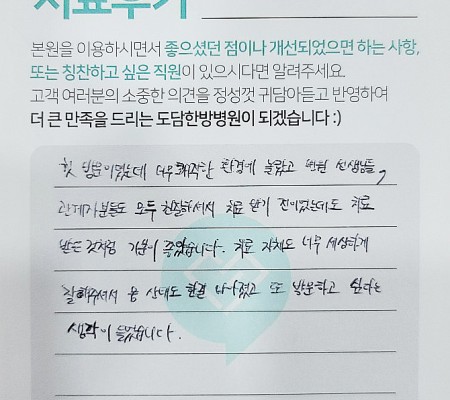 치료후기
본원을 이용하시면서 좋으셨던 점이나 개선되었으면 하는 사항,
또는 칭찬하고 싶은 직원이 있으시다면 알려주세요.
고객 여러분의 소중한 의견을 정성껏 귀담아듣고 반영하여
더 큰 만족을 드리는 도담한방병원이 되겠습니다 :)
첫 방문이었는데 너무 쾌적한 환경에 놀랐고 병원 선생님들,
관계자분들도 모두 친절하셔서 치료 받기 전이었는데도 치료
받은 것처럼 기분이 좋았습니다. 치료 자체도 너무 세심하게
잘해주셔서 몸 상태도 한결 나아졌고 또 방문하고 싶다는
생각이 들었습니다.